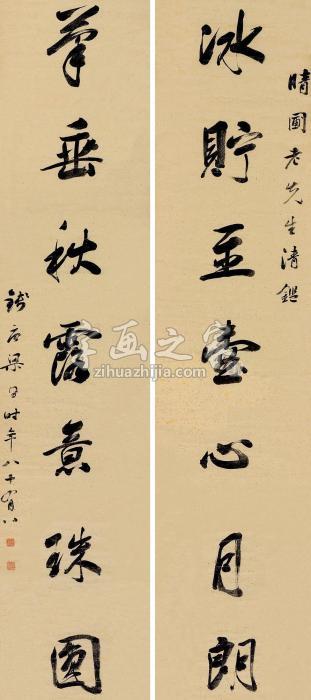 晴圃老先生清鑑
冰貯玉壺心月朗
筆垂秋露意珠圓
錢唐梁同書時年八十有八
字画之家
zihuazhijia.com